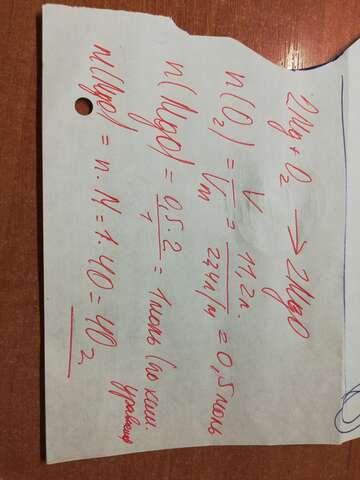 2Mg + O₂ → 2MgO
n(O₂) = V/Vm = 11,2л./22,4л/м = 0,5 моль
n(MgO) = 0,5·2/1 = 1 моль (по хим. уравнен
m(MgO) = n·M = 1·40 = 40 г